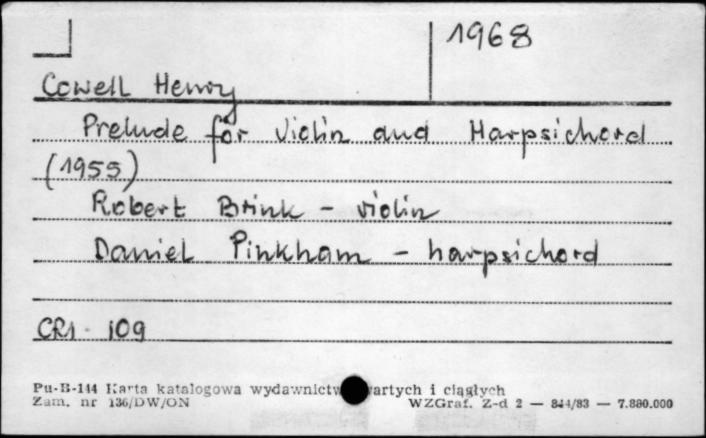 1968
Cowell Henry
Prelude for Violin and Harpsichord
(1955)
Robert Brink - violin
Daniel Pinkham - harpsichord
CRI - 109
Pu-B-144 Karta katalogowa wydawnictw artych i ciągłych
Zam. nr 136/DW/ON WZGraf. Z-d 2 — 844/83 — 7.880.000